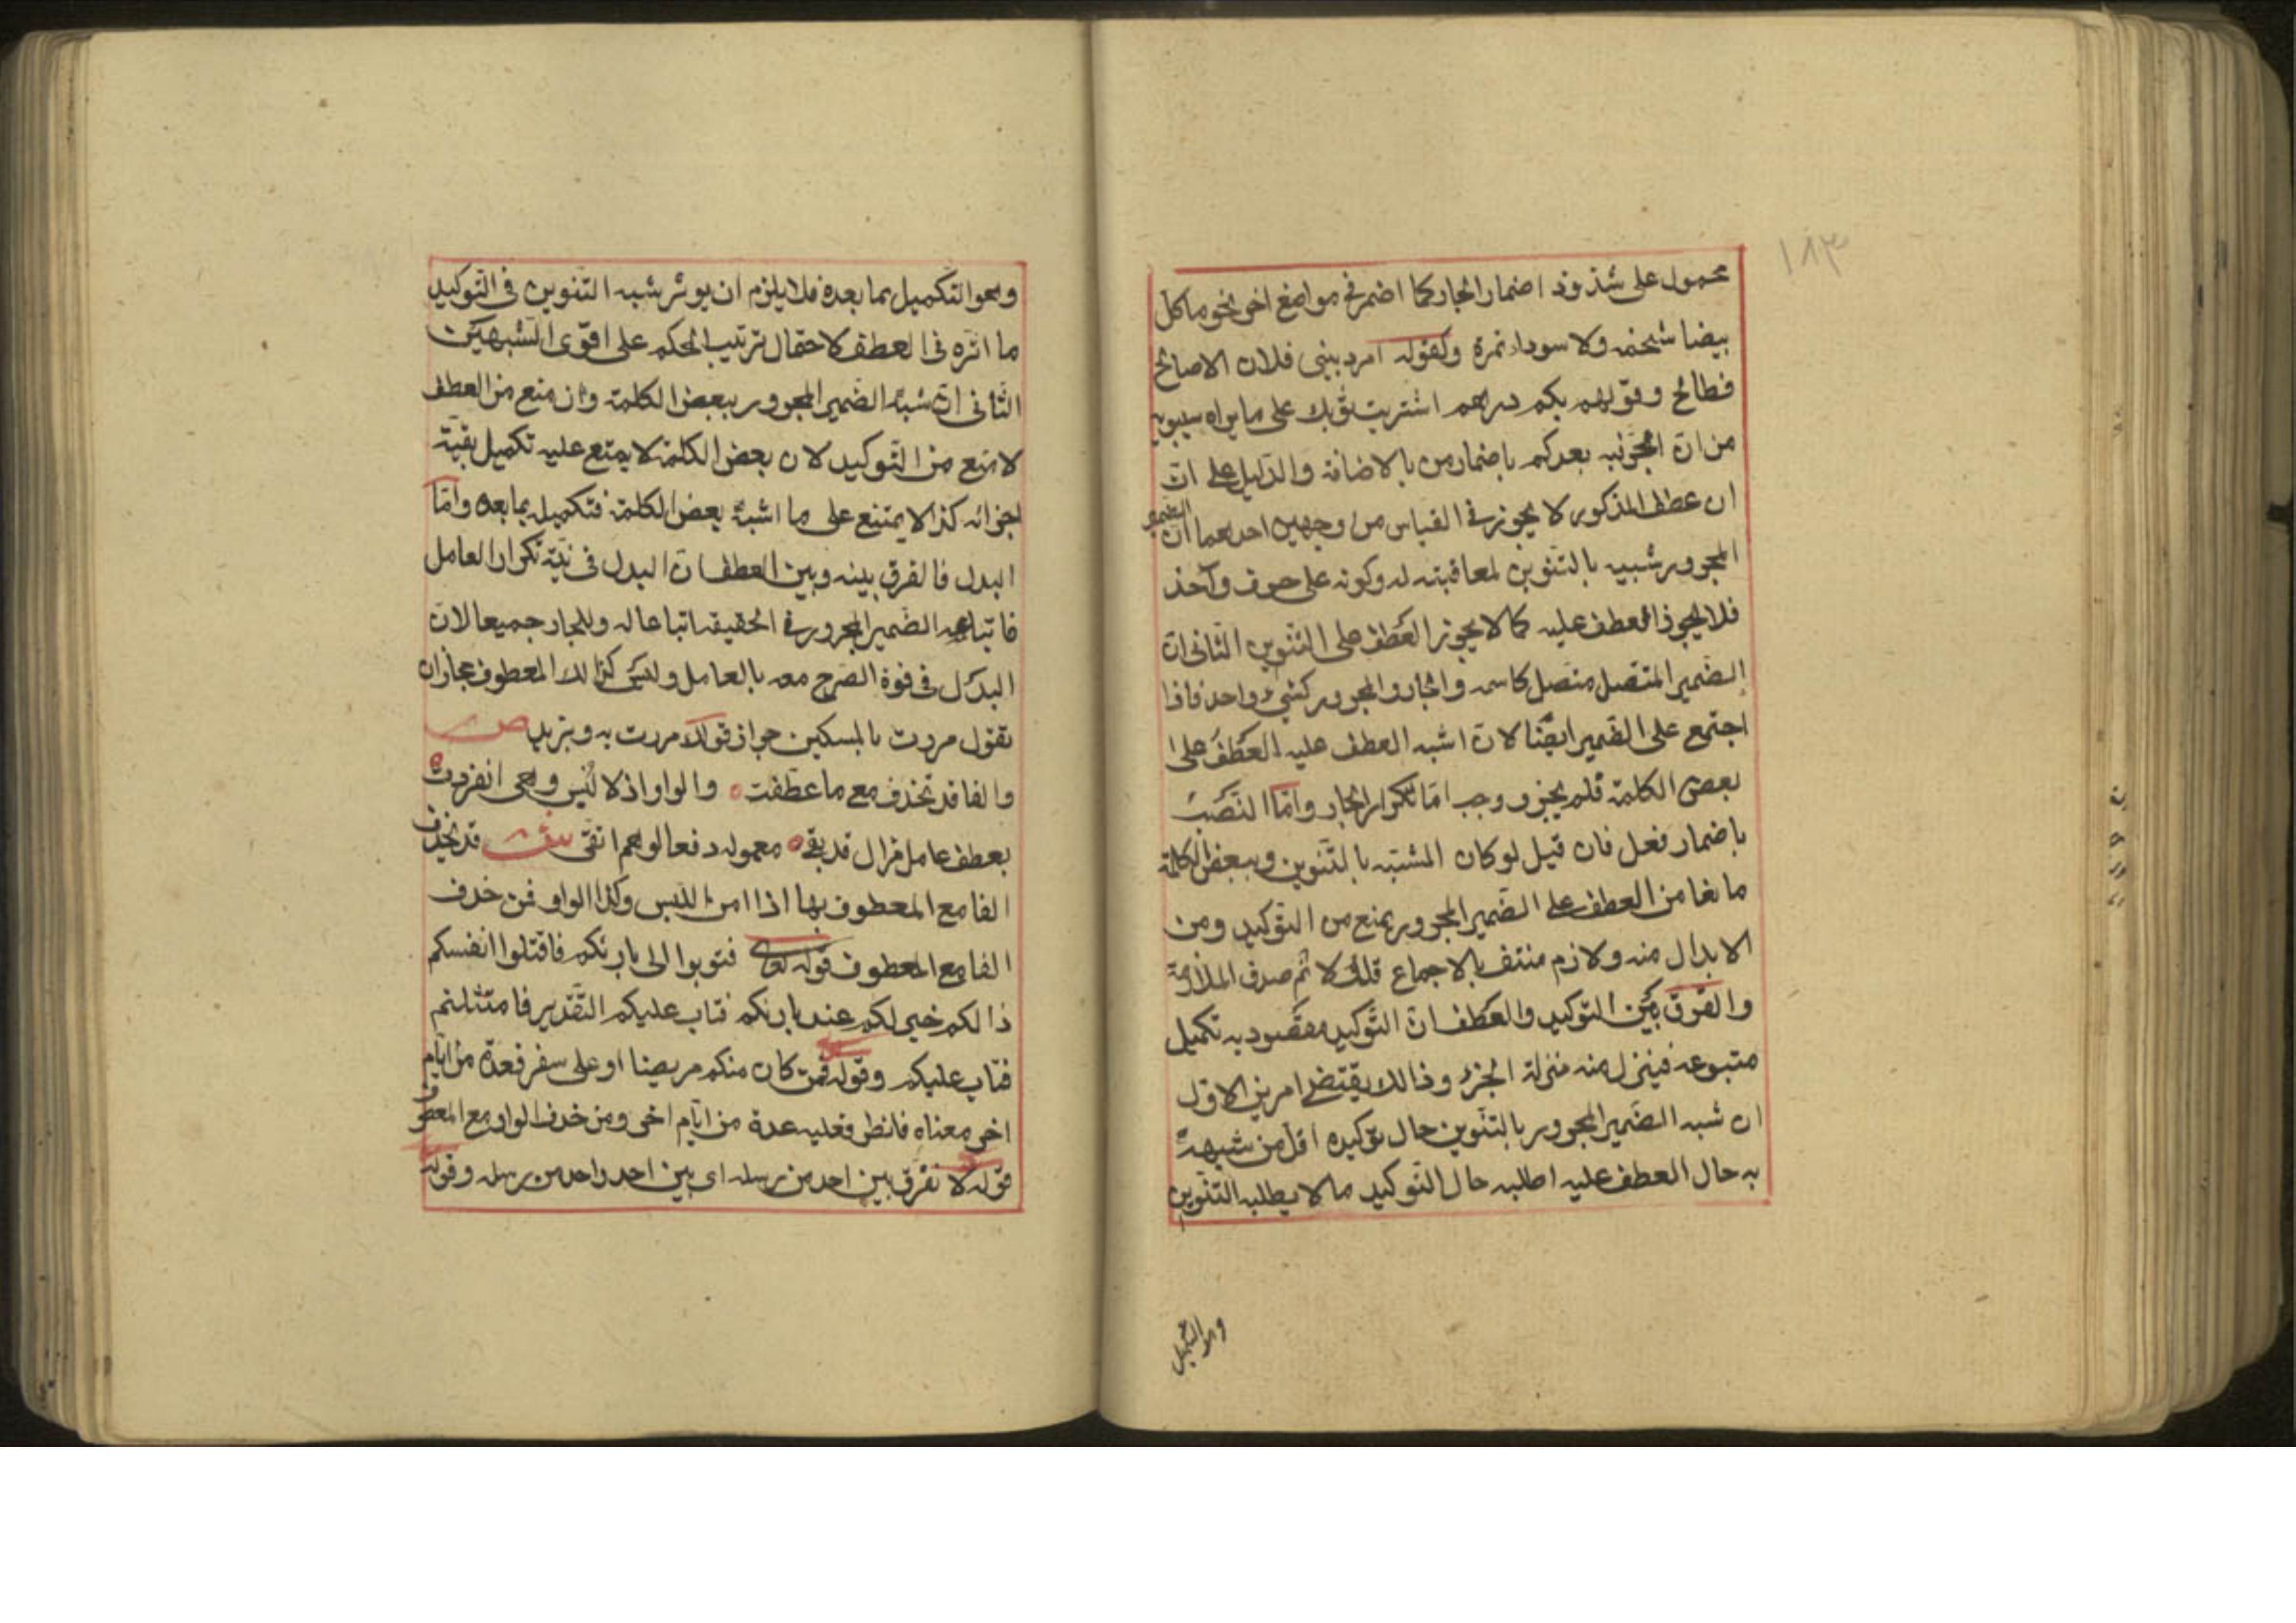 ١٨٣
محمول على شذوذ اضمار الجار كما اضمر في مواضع اخر نحو ما كل
بيضا شحمه ولا سودا تمرة وكقوله امرر ببني فلان الا صالح
فطالح وقولهم بكم درهم اشتريت ثوبك على ما يراه سيبويه
من ان الجر فيه بعد كم باضمار من بالاضافة والدليل على ان
ان عطف المذكور لا يجوز في القياس من وجهين احدهما ان الضمير
المجرور شبيه بالتنوين لمعاقبته له وكونه على حرف واحد
فلا يجوز العطف عليه كما لا يجوز العطف على التنوين الثاني ان
الضمير المتصل متصل كاسمه والجار والمجرور كشيء واحد فاذا
اجتمع على الضمير ايضا لان اشبه العطف عليه العطف على
بعض الكلمة فلم يجز ووجب اما تكرار الجار واما النصب
باضمار فعل فان قيل لو كان المشبه بالتنوين وببعض الكلمة
مانعا من العطف على الضمير المجرور يمنع من التوكيد ومن
الابدال منه ولازم منتف بالاجماع قلت لا ثم صدق الملازمة
والفرق بين التوكيد والعطف ان التوكيد مقصود به تكميل
متبوعه فينزل منه منزلة الجزء وذالك يقتضي امرين الاول
ان شبه الضمير المجرور بالتنوين حال توكيده اقل من شبهه
به حال العطف عليه اطلبه حال التوكيد ما لا يطلبه التنوين
وهو التكميل بما بعده فلا يلزم ان يوثر شبه التنوين في التوكيد
ما اثره في العطف لاحتمال ترتيب الحكم على اقوى الشبهين
الثاني ان شبه الضمير المجرور ببعض الكلمة وان منع من العطف
لا منع من التوكيد لان بعض الكلمة لا يمتنع عليه تكميل بقية
اجزائه كذا لا يمتنع على ما اشبه بعض الكلمة فتكميله بما بعده واما
البدل فالفرق بينه وبين العطف ان البدل في نية تكرار العامل
فاتباعه الضمير المجرور في الحقيقة اتباعا له وللجار جميعا لان
البدل في قوة المصرح معه بالعامل وليس كذالك المعطوف فجاز ان
تقول مررت بالمسكين جواز قولك مررت به وبزيد ص
والفا قد تحذف مع ما عطفت ٥ والواو اذ لا لبس وهي انفردت ٥
بعطف عامل مزال قد بقي ٥ معموله دفعا لوهم اتقي ش قد تحذف
الفا مع المعطوف بها اذا امن اللبس وكذا الواو فمن حذف
الفا مع المعطوف قوله تعالى فتوبوا الى بارئكم فاقتلوا انفسكم
ذالكم خير لكم عند بارئكم فتاب عليكم التقدير فامتثلتم
فتاب عليكم وقوله فمن كان منكم مريضا او على سفر فعدة من ايام
اخر معناه فافطر فعليه عدة من ايام اخر ومن حذف الواو مع المعطوف
قوله لا نفرق بين احد من رسله اي بين احد واحد من رسله وقوله